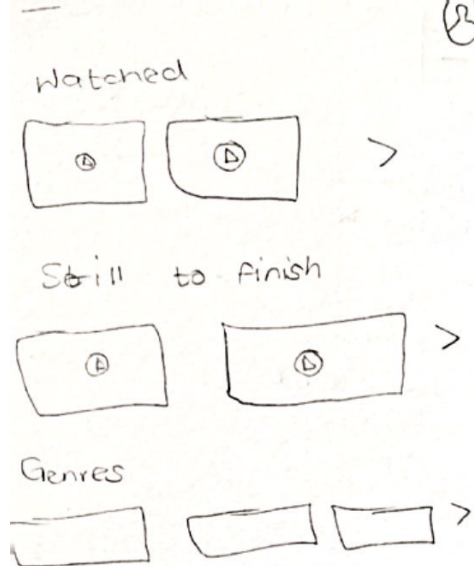 Watched
Still to finish
Genres